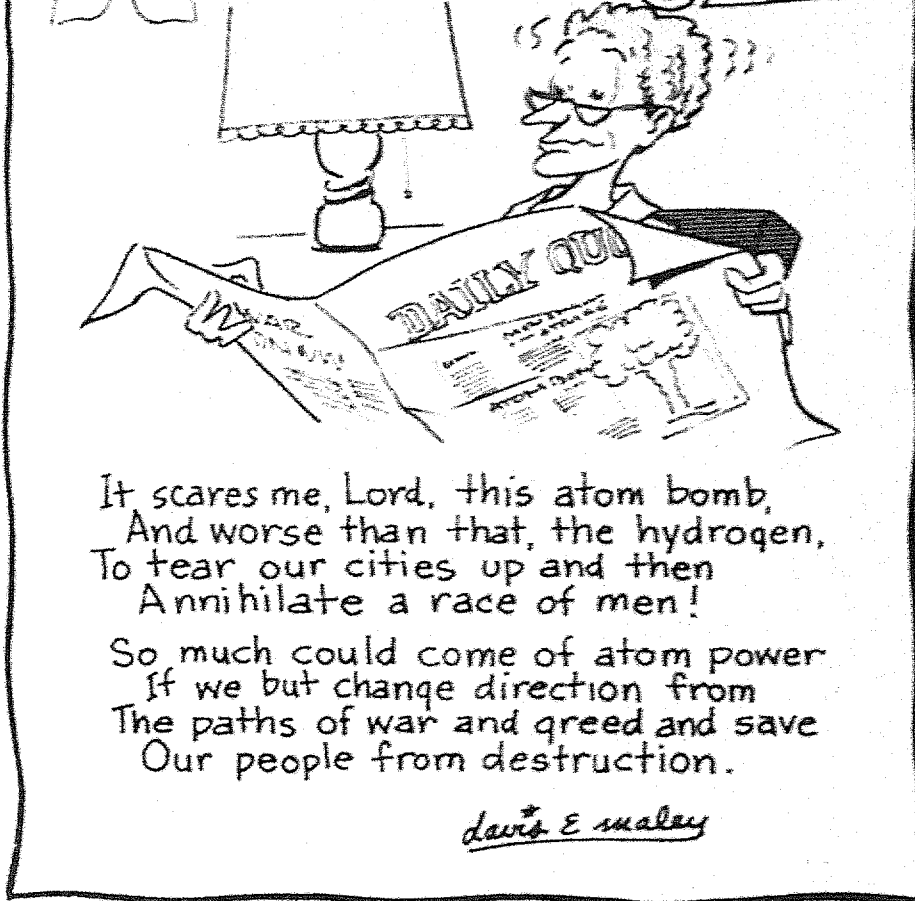 DAILY QU
WAR
ATOM BOMB
It scares me, Lord, this atom bomb,
And worse than that, the hydrogen,
To tear our cities up and then
Annihilate a race of men!
So much could come of atom power
If we but change direction from
The paths of war and greed and save
Our people from destruction.
davis E maley